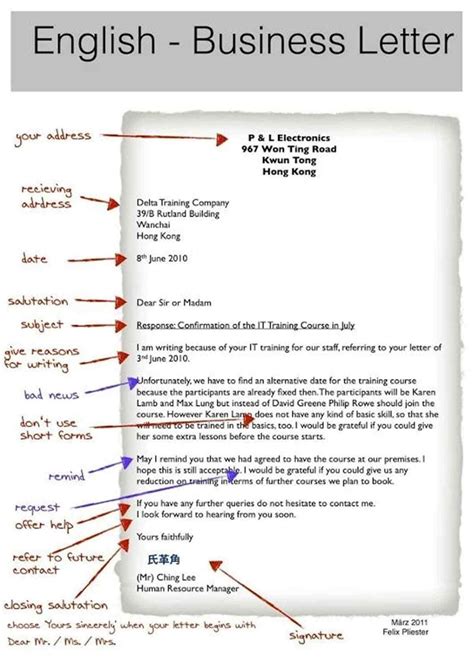 English - Business Letter
your address
P & L Electronics
967 Won Ting Road
Kwun Tong
Hong Kong
recieving
adrdress
Delta Training Company
39/B Rutland Building
Wanchai
Hong Kong
date
8th June 2010
salutation
Dear Sir or Madam
subject
Response: Confirmation of the IT Training Course in July
give reasons
for writing
I am writing because of your IT training for our staff, referring to your letter of
3rd June 2010.
bad news
Unfortunately, we have to find an alternative date for the training course
because the participants are already fixed then. The participants will be Karen
Lamb and Max Lung but instead of David Greene Philip Rowe should join the
course. However Karen Lamp does not have any kind of basic skill, so that she
will need to be trained in the basics, too. I would be grateful if you could give
her some extra lessons before the course starts.
don't use
short forms
remind
May I remind you that we had agreed to have the course at our premises. I
hope this is still acceptable. I would be grateful if you could give us any
reduction on training in terms of further courses we plan to book.
request
offer help
If you have any further queries do not hesitate to contact me.
I look forward to hearing from you soon.
refer to future
contact
Yours faithfully
氏革角
(Mr) Ching Lee
Human Resource Manager
closing salutation
choose 'Yours sincerely' when your letter begins with
Dear Mr. / Ms. / Mrs.
signature
März 2011
Felix Pliester